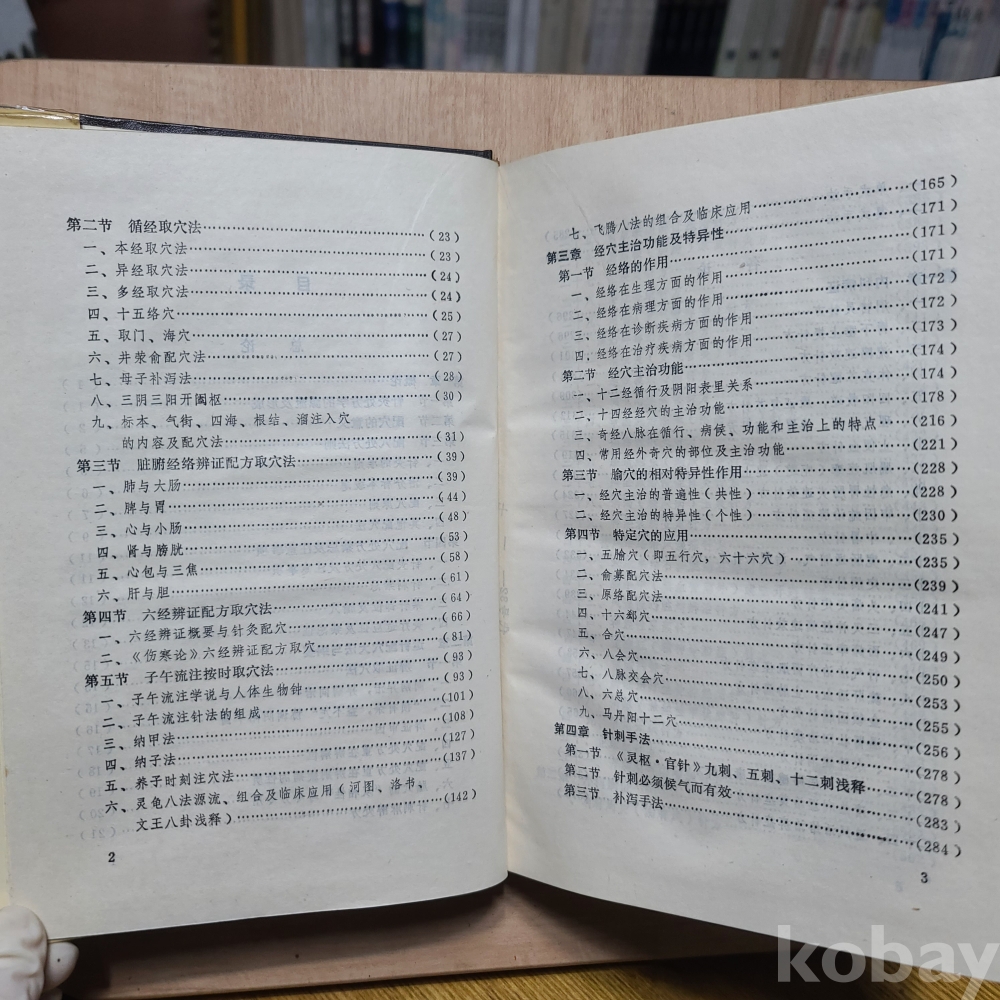 第二节 循经取穴法……(23)
一、本经取穴法……(23)
二、异经取穴法……(24)
三、多经取穴法……(24)
四、十五络穴……(25)
五、取门、海穴……(27)
六、井荥俞配穴法……(27)
七、母子补泻法……(28)
八、三阴三阳开阖枢……(30)
九、标本、气街、四海、根结、溜注入穴
的内容及配穴法……(31)
第三节 脏腑经络辨证配方取穴法……(39)
一、肺与大肠……(39)
二、脾与胃……(44)
三、心与小肠……(48)
四、肾与膀胱……(53)
五、心包与三焦……(58)
六、肝与胆……(61)
第四节 六经辨证配方取穴法……(64)
一、六经辨证概要与针灸配穴……(66)
二、《伤寒论》六经辨证配方取穴……(81)
第五节 子午流注按时取穴法……(93)
一、子午流注学说与人体生物钟……(93)
二、子午流注针法的组成……(101)
三、纳甲法……(108)
四、纳子法……(127)
五、养子时刻注穴法……(137)
六、灵龟八法源流、组合及临床应用（河图、洛书、
文王八卦浅释）……(142)
2
七、飞腾八法的组合及临床应用……(165)
第三章 经穴主治功能及特异性……(171)
第一节 经络的作用……(171)
一、经络在生理方面的作用……(171)
二、经络在病理方面的作用……(172)
三、经络在诊断疾病方面的作用……(172)
四，经络在治疗疾病方面的作用……(173)
第二节 经穴主治功能……(174)
一、十二经循行及阴阳表里关系……(174)
二、十四经经穴的主治功能……(178)
三、奇经八脉在循行、病候、功能和主治上的特点……(216)
四、常用经外奇穴的部位及主治功能……(221)
第三节 腧穴的相对特异性作用……(228)
一、经穴主治的普遍性（共性）……(228)
二、经穴主治的特异性（个性）……(230)
第四节 特定穴的应用……(235)
一、五腧穴（即五行穴，六十六穴）……(235)
二、俞募配穴法……(239)
三、原络配穴法……(241)
四、十六郄穴……(247)
五、合穴……(249)
六、八会穴……(250)
七、八脉交会穴……(253)
八、六总穴……(255)
九、马丹阳十二穴……(256)
第四章 针刺手法……(278)
第一节 《灵枢·官针》九刺、五刺、十二刺浅释……(278)
第二节 针刺必须候气而有效……(283)
第三节 补泻手法……(284)
3
kobay